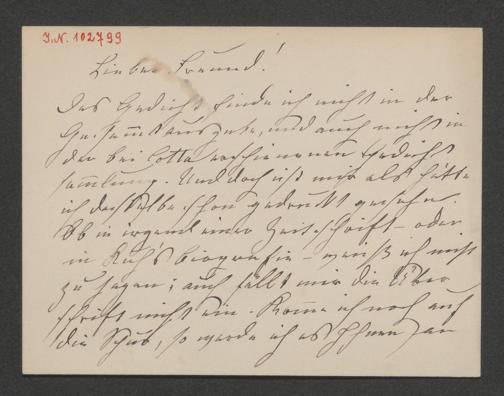 J.N. 102799
Lieber Freund!
Das Gedicht finde ich nicht in der
Gesammtausgabe, und auch nicht in
der bei Cotta erschienenen Gedicht
sammlung. Und doch ist mir als hätte
ich dasselbe schon gedruckt gesehen.
Ob in irgend einer Zeitschrift – oder
in Kuh's biografie – weiß ich nicht
zu sagen; auch fällt mir die Über
schrift nicht ein. Komme ich noch auf
die Spur, so werde ich es Ihnen an